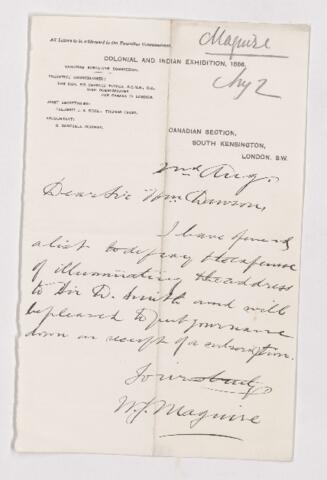 Maguire
All Letters to be addressed to the Executive Commissioner.
COLONIAL AND INDIAN EXHIBITION, 1886,
Aug 2
CANADIAN EXECUTIVE COMMISSION.
EXECUTIVE COMMISSIONER:
THE HON. SIR CHARLES TUPPER, G.C.M.G., C.B.
HIGH COMMISSIONER
FOR CANADA IN LONDON.
ACCOUNTANT:
CANADIAN SECTION,
SOUTH KENSINGTON,
LONDON. S.W.
2nd Aug.
Dear Sir Wm Dawson,
I have opened
a list to defray the expense
of illuminating the address
to Sir D. Smith and will
be pleased to put your name
down on receipt of a subscription.
Yours truly
W. J. Maguire